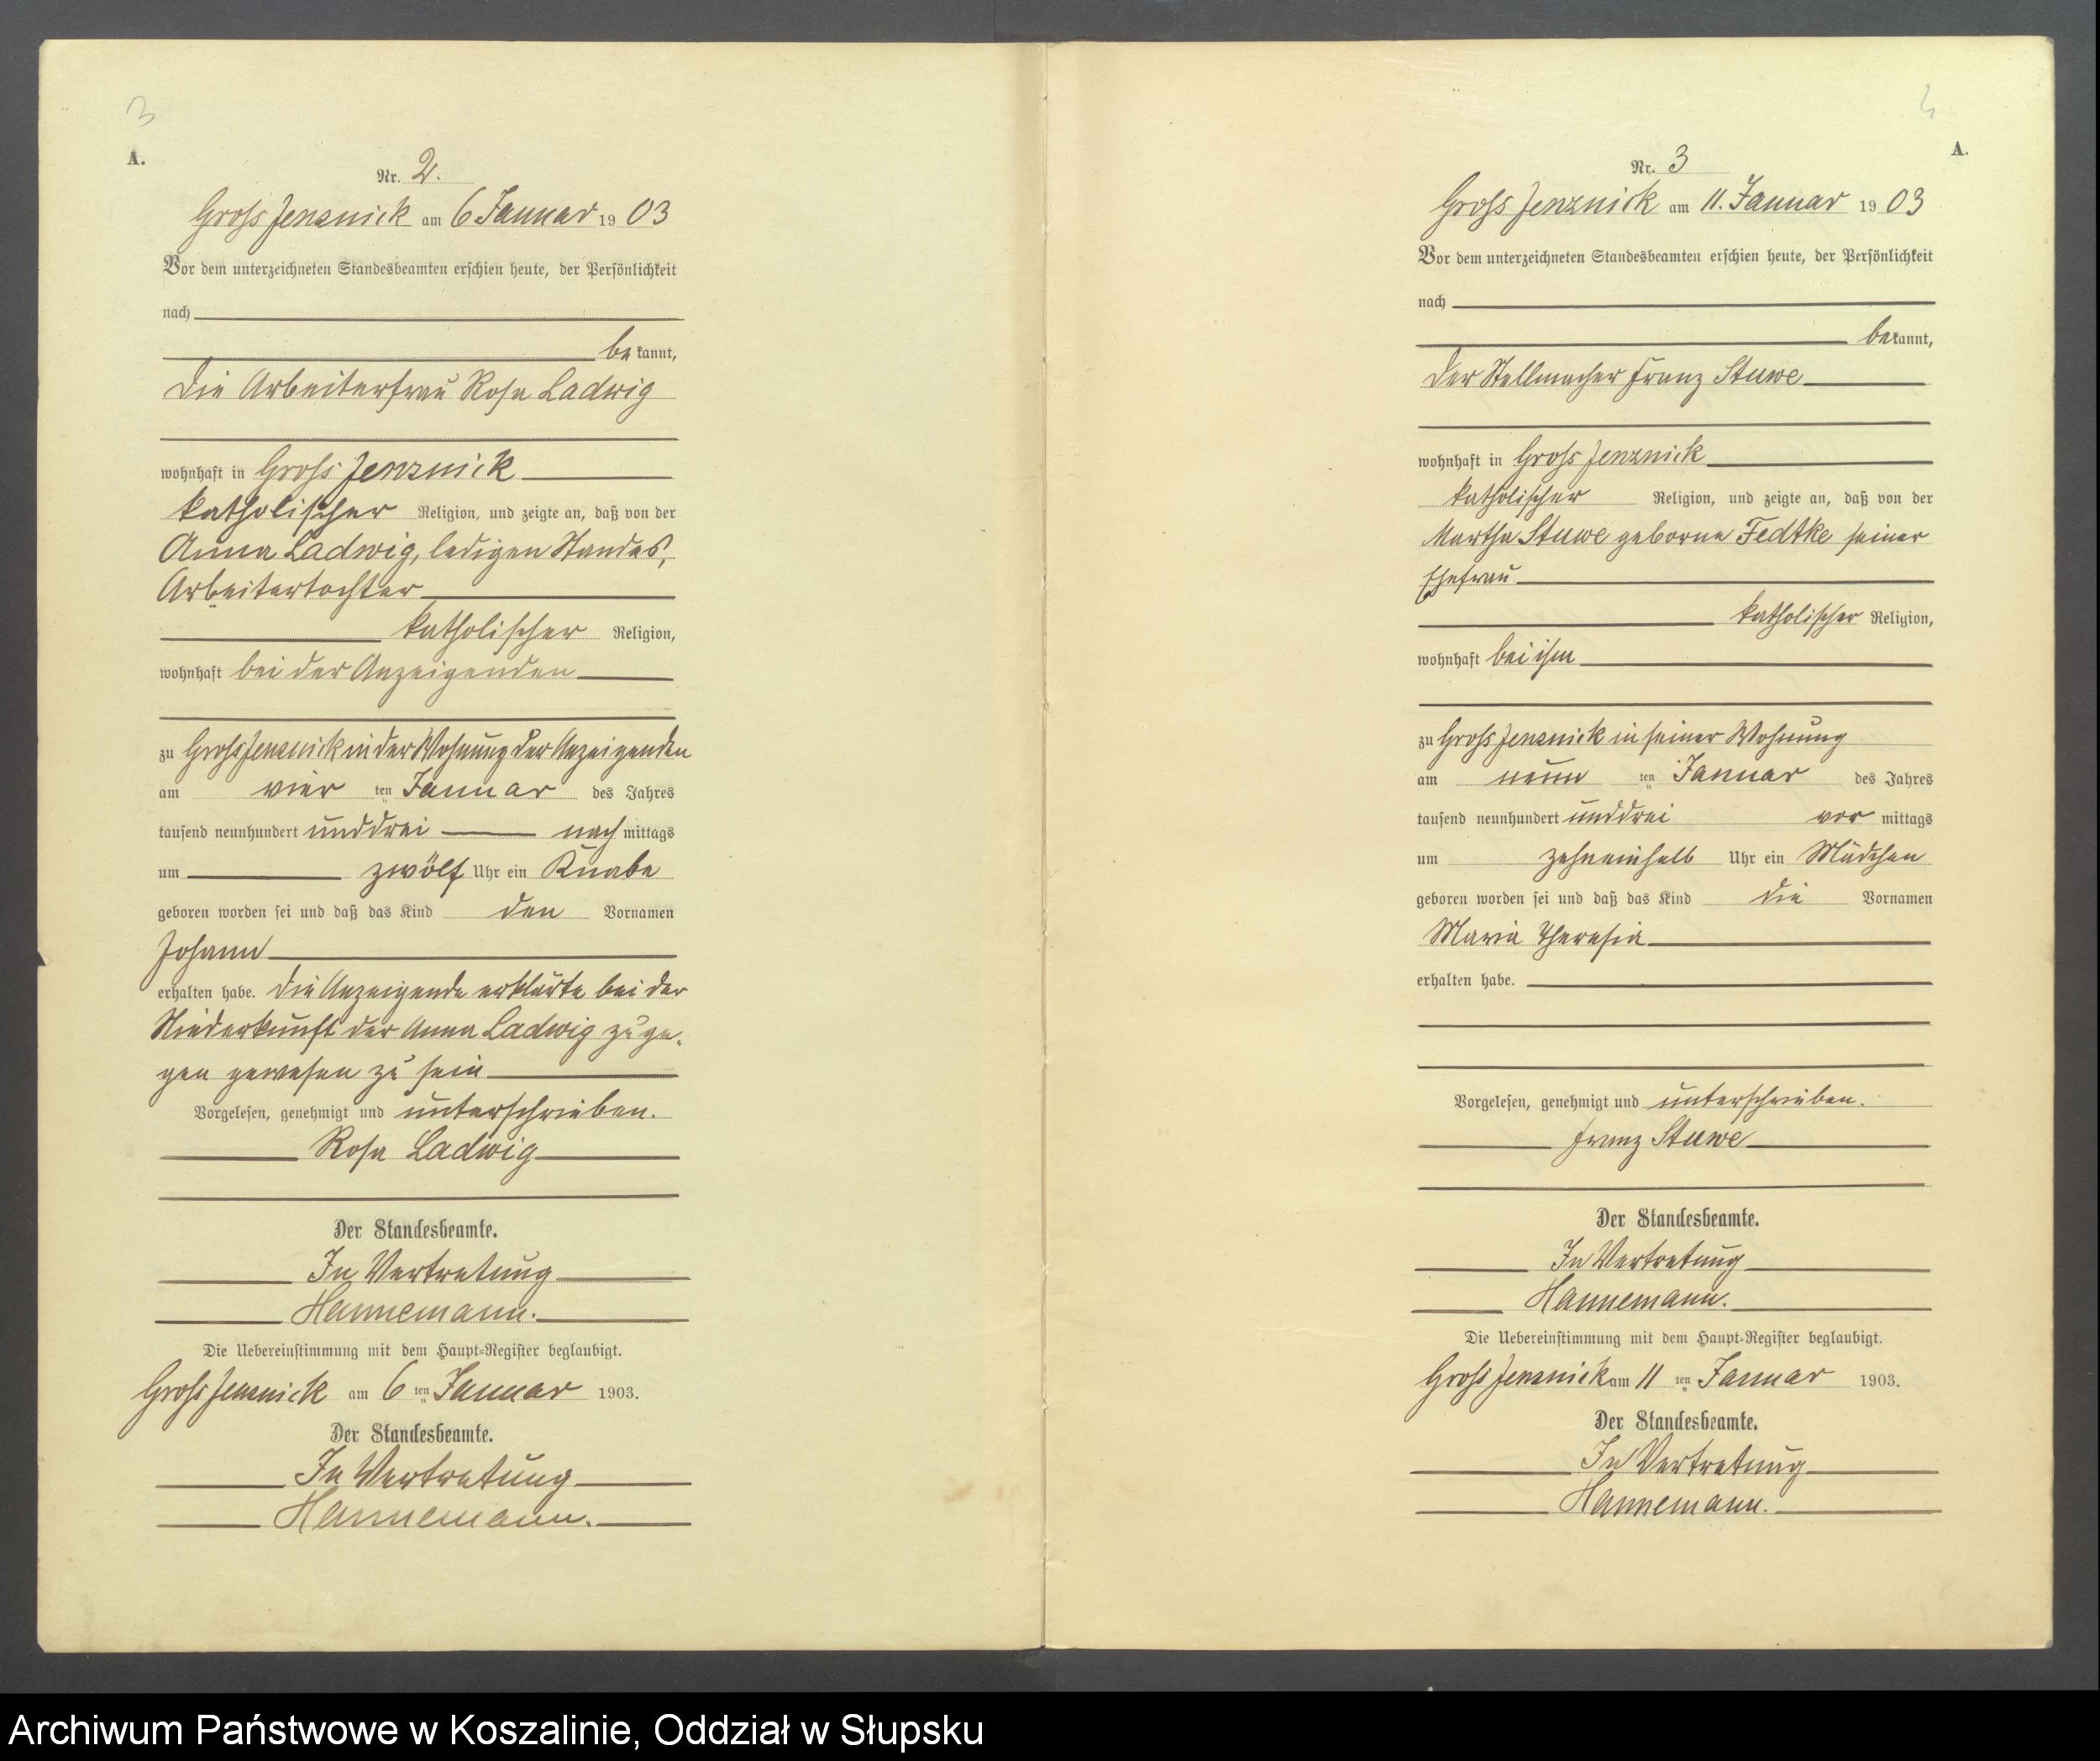 3
A.
Nr. 2.
Gross Jenznick am 6 Januar 1903
Vor dem unterzeichneten Standesbeamten erschien heute, der Persönlichkeit
nach
bekannt,
die Arbeiterfrau Rosa Ladwig
wohnhaft in Gross Jenznick
katholischer Religion, und zeigte an, daß von der
Anna Ladwig, ledigen Standes,
Arbeitertochter
katholischer Religion,
wohnhaft bei der Anzeigenden
zu Gross Jenznick in der Wohnung der Anzeigenden
am vier ten Januar des Jahres
tausend neunhundert und drei nach mittags
um zwölf Uhr ein Knabe
geboren worden sei und daß das Kind den Vornamen
Johann
erhalten habe. Die Anzeigende erklärte bei der
Niederkunft der Anna Ladwig zuge-
gen gewesen zu sein
Vorgelesen, genehmigt und unterschrieben.
Rosa Ladwig
Der Standesbeamte.
In Vertretung
Hannemann.
Die Uebereinstimmung mit dem Haupt-Register beglaubigt.
Gross Jenznick am 6 ten Januar 1903.
Der Standesbeamte.
In Vertretung
Hannemann.
A.
Nr. 3
Gross Jenznick am 11. Januar 1903
Vor dem unterzeichneten Standesbeamten erschien heute, der Persönlichkeit
nach
bekannt,
der Stellmacher Franz Stuwe
wohnhaft in Gross Jenznick
katholischer Religion, und zeigte an, daß von der
Martha Stuwe geborne Fedtke seiner
Ehefrau
katholischer Religion,
wohnhaft bei ihm
zu Gross Jenznick in seiner Wohnung
am neun ten Januar des Jahres
tausend neunhundert und drei vor mittags
um zehneinhalb Uhr ein Mädchen
geboren worden sei und daß das Kind die Vornamen
Maria Theresia
erhalten habe.
Vorgelesen, genehmigt und unterschrieben.
Franz Stuwe
Der Standesbeamte.
In Vertretung
Hannemann.
Die Uebereinstimmung mit dem Haupt-Register beglaubigt.
Gross Jenznick am 11 ten Januar 1903.
Der Standesbeamte.
In Vertretung
Hannemann.
Archiwum Państwowe w Koszalinie, Oddział w Słupsku